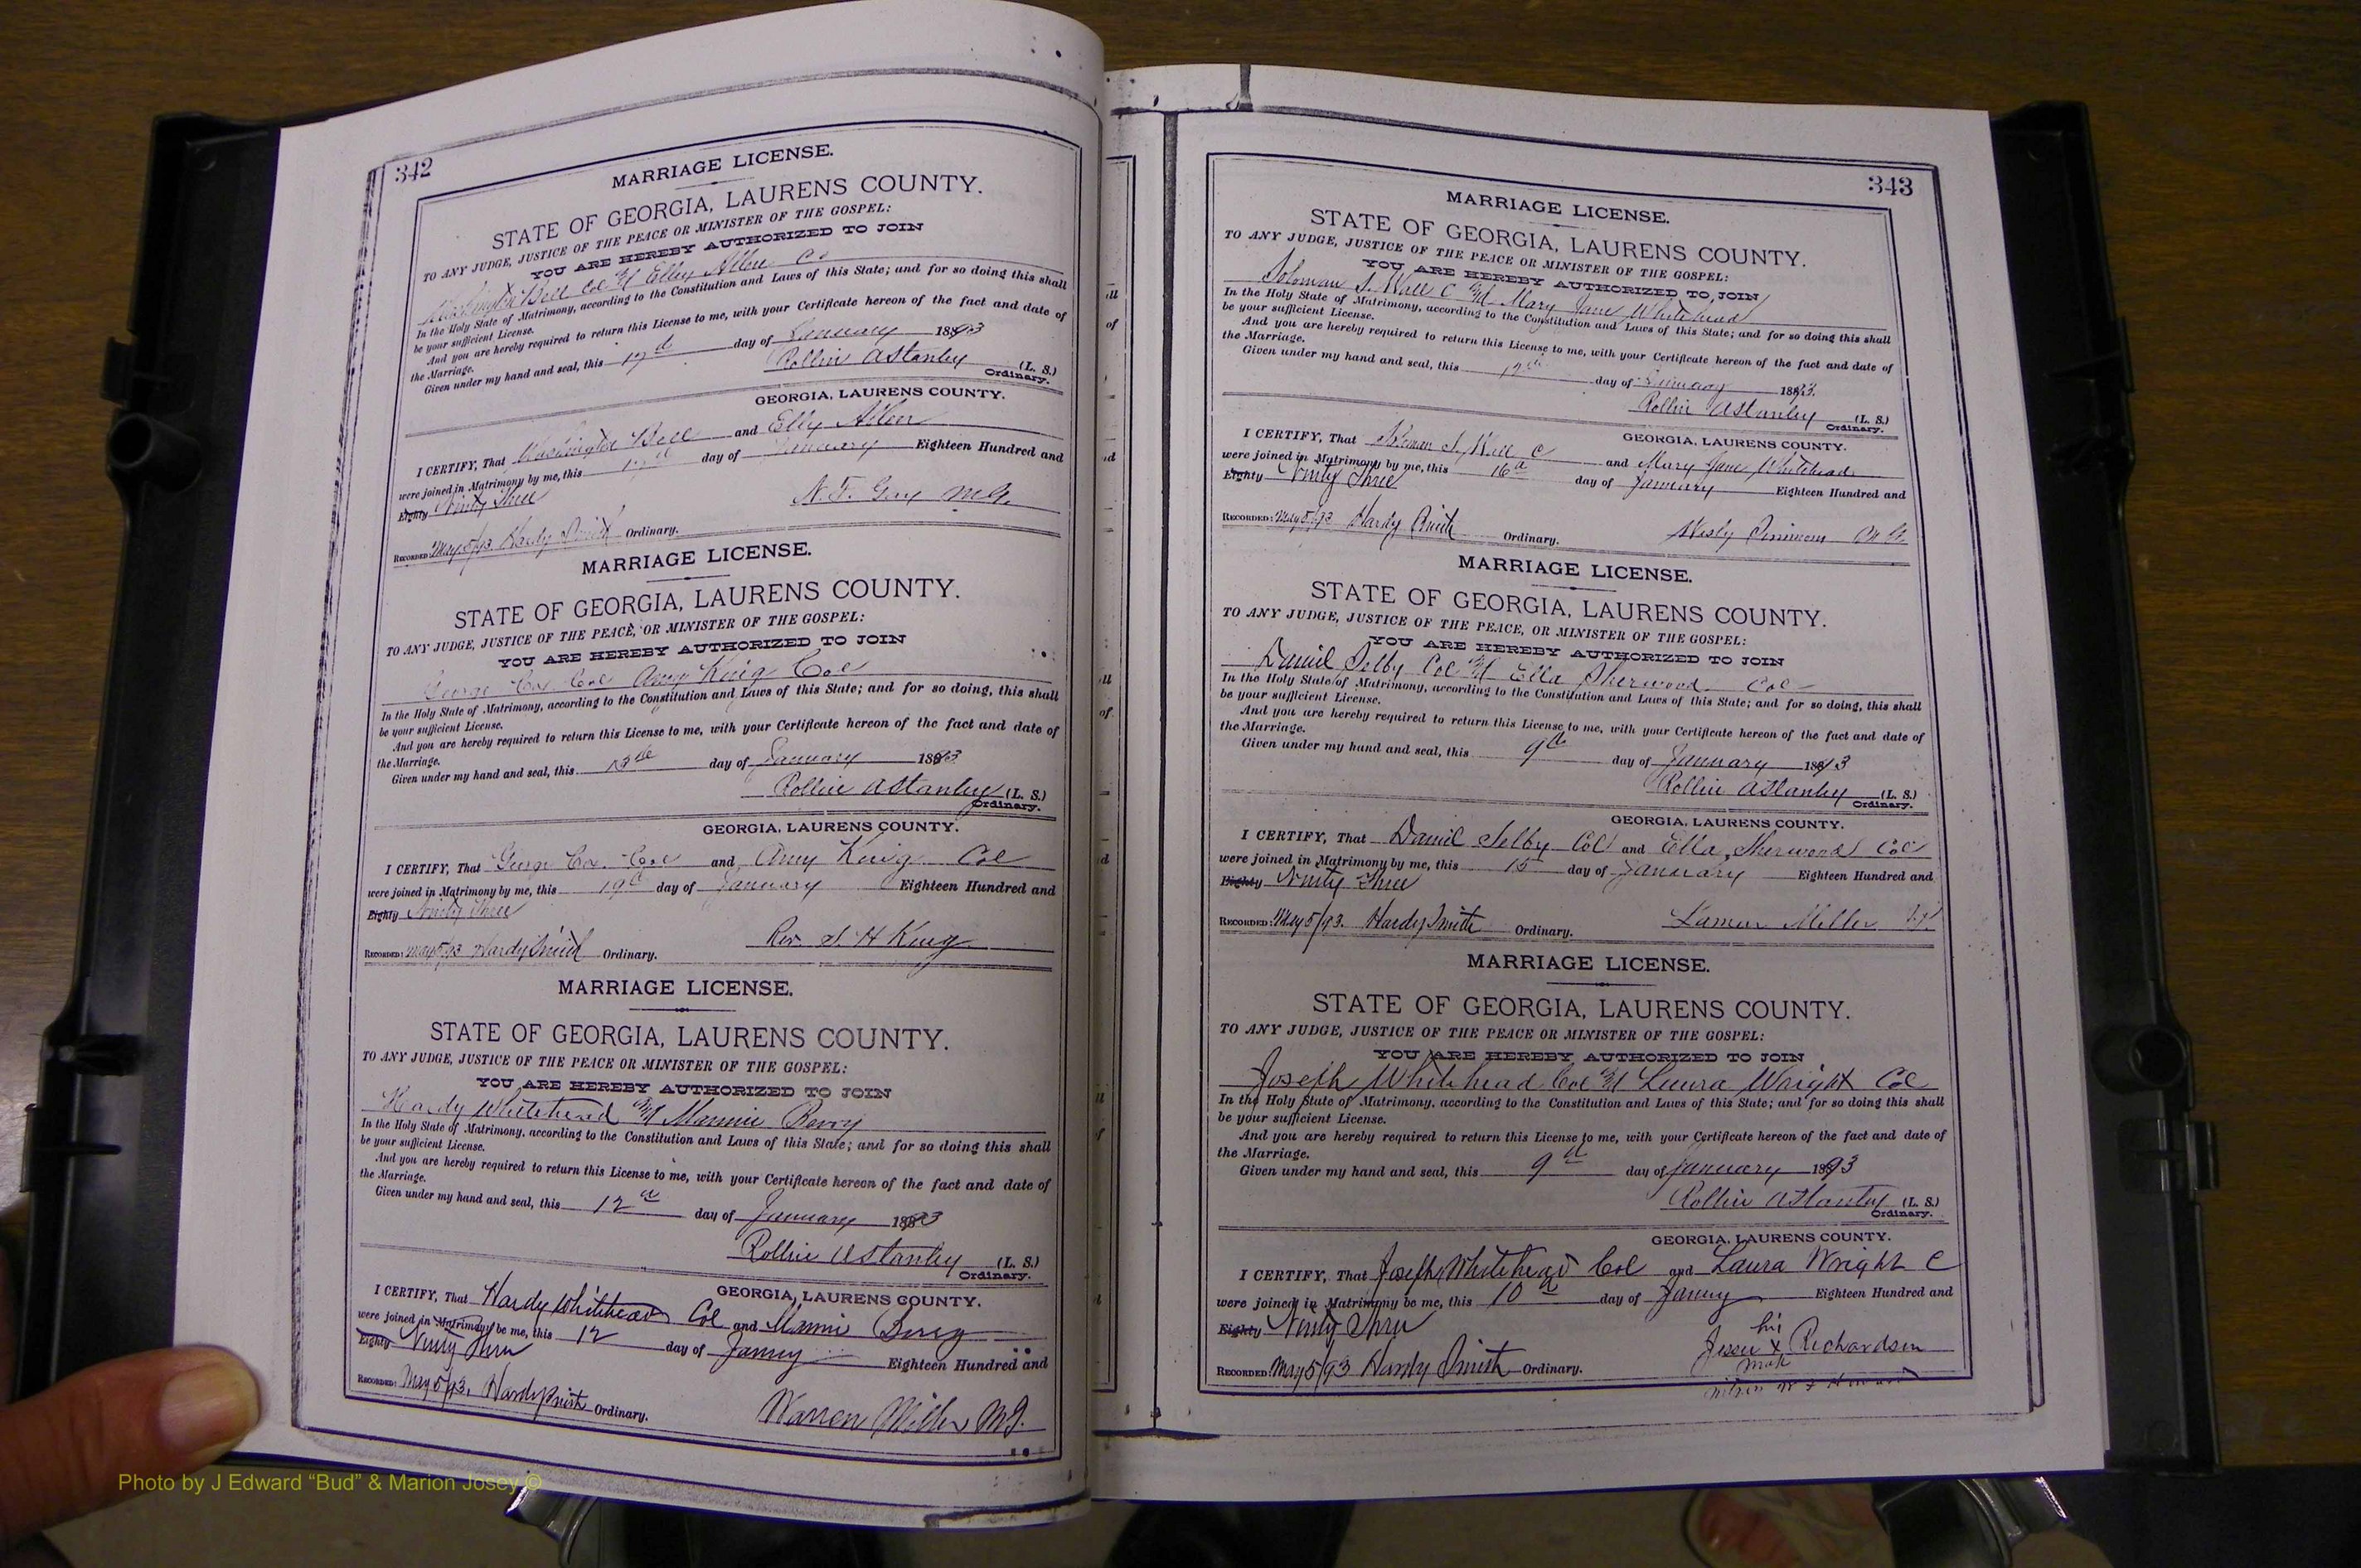 342
MARRIAGE LICENSE.
STATE OF GEORGIA, LAURENS COUNTY.
TO ANY JUDGE, JUSTICE OF THE PEACE OR MINISTER OF THE GOSPEL:
YOU ARE HEREBY AUTHORIZED TO JOIN
Washington Bell Col and Elby
In the Holy State of Matrimony, according to the Constitution and Laws of this State; and for so doing this shall
be your sufficient License.
And you are hereby required to return this License to me, with your Certificate hereon of the fact and date of
the Marriage.
Given under my hand and seal, this 17th day of January 1893
Rollin A Stanley (L. S.)
Ordinary.
GEORGIA, LAURENS COUNTY.
I CERTIFY, That Washington Bell and Elby
were joined in Matrimony by me, this 17 day of January Eighteen Hundred and
Eighty Ninty Three
N. F. Gray M.G.
Recorded: May 5/93 Hardy Smith Ordinary.
MARRIAGE LICENSE.
STATE OF GEORGIA, LAURENS COUNTY.
TO ANY JUDGE, JUSTICE OF THE PEACE, OR MINISTER OF THE GOSPEL:
YOU ARE HEREBY AUTHORIZED TO JOIN
George Cox Col Amy King Col
In the Holy State of Matrimony, according to the Constitution and Laws of this State; and for so doing, this shall
be your sufficient License.
And you are hereby required to return this License to me, with your Certificate hereon of the fact and date of
the Marriage.
Given under my hand and seal, this 13th day of January 1893
Rollin A Stanley (L. S.)
Ordinary.
GEORGIA, LAURENS COUNTY.
I CERTIFY, That George Cox Col and Amy King Col
were joined in Matrimony by me, this 19 day of January Eighteen Hundred and
Eighty Ninty Three
Rev. S. H King
Recorded: May 5/93 Hardy Smith Ordinary.
MARRIAGE LICENSE.
STATE OF GEORGIA, LAURENS COUNTY.
TO ANY JUDGE, JUSTICE OF THE PEACE OR MINISTER OF THE GOSPEL:
YOU ARE HEREBY AUTHORIZED TO JOIN
Hardy Whitehead and Mannie Berry
In the Holy State of Matrimony, according to the Constitution and Laws of this State; and for so doing this shall
be your sufficient License.
And you are hereby required to return this License to me, with your Certificate hereon of the fact and date of
the Marriage.
Given under my hand and seal, this 12th day of January 1893
Rollin A Stanley (L. S.)
Ordinary.
GEORGIA, LAURENS COUNTY.
I CERTIFY, That Hardy Whitehead Col and Mannie
were joined in Matrimony be me, this 12 day of Janny Eighteen Hundred and
Eighty Ninty Three
Recorded: May 5/93. Hardy Smith Ordinary.
Warren Miller MG.
343
MARRIAGE LICENSE.
STATE OF GEORGIA, LAURENS COUNTY.
TO ANY JUDGE, JUSTICE OF THE PEACE OR MINISTER OF THE GOSPEL:
YOU ARE HEREBY AUTHORIZED TO JOIN
Soloman S. Wall C and Mary Jane Whitehead
In the Holy State of Matrimony, according to the Constitution and Laws of this State; and for so doing this shall
be your sufficient License.
And you are hereby required to return this License to me, with your Certificate hereon of the fact and date of
the Marriage.
Given under my hand and seal, this day of January 1893.
Rollin A Stanley (L. S.)
Ordinary.
GEORGIA, LAURENS COUNTY.
I CERTIFY, That Soloman S. Wall C and Mary Jane Whitehead
were joined in Matrimony by me, this 16 day of January Eighteen Hundred and
Eighty Ninty Three
Recorded: May 5/93 Hardy Smith Ordinary.
Wesly Simmons M G.
MARRIAGE LICENSE.
STATE OF GEORGIA, LAURENS COUNTY.
TO ANY JUDGE, JUSTICE OF THE PEACE, OR MINISTER OF THE GOSPEL:
YOU ARE HEREBY AUTHORIZED TO JOIN
Daniel Selby Col and Ella Sherwood Col
In the Holy State of Matrimony, according to the Constitution and Laws of this State; and for so doing, this shall
be your sufficient License.
And you are hereby required to return this License to me, with your Certificate hereon of the fact and date of
the Marriage.
Given under my hand and seal, this 9th day of January 1893
Rollin A Stanley (L. S.)
Ordinary.
GEORGIA, LAURENS COUNTY.
I CERTIFY, That Daniel Selby Col and Ella Sherwood Col
were joined in Matrimony by me, this 15 day of January Eighteen Hundred and
Eighty Ninty Three
Recorded: May 5/93. Hardy Smith Ordinary.
Lamar Miller
MARRIAGE LICENSE.
STATE OF GEORGIA, LAURENS COUNTY.
TO ANY JUDGE, JUSTICE OF THE PEACE OR MINISTER OF THE GOSPEL:
YOU ARE HEREBY AUTHORIZED TO JOIN
Joseph Whitehead Col and Laura Wright Col
In the Holy State of Matrimony, according to the Constitution and Laws of this State; and for so doing this shall
be your sufficient License.
And you are hereby required to return this License to me, with your Certificate hereon of the fact and date of
the Marriage.
Given under my hand and seal, this 9th day of January 1893
Rollin A Stanley (L. S.)
Ordinary.
GEORGIA, LAURENS COUNTY.
I CERTIFY, That Joseph Whitehead Col and Laura Wright C
were joined in Matrimony be me, this 10th day of Janny Eighteen Hundred and
Eighty Ninty Three
his
Jesse X Richardson
mark
Recorded: May 5/93 Hardy Smith Ordinary.
Photo by J Edward “Bud” & Marion Josey ©